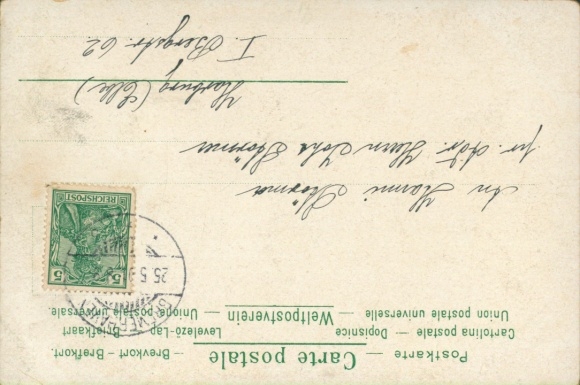 Carte postale
Postkarte — Dopisnice — Brevkort - Brefkort.
Cartolina postale — Levelező-Lap — Briefkaart
Union postale universelle — Weltpostverein — Unione postale universale.
BREMERHAVEN
25.5.
REICHSPOST
5 5
An Hanni Störmer
pr. Adr. Herrn Johs Störmer
Harburg (Elbe)
I. Bergstr. 62.